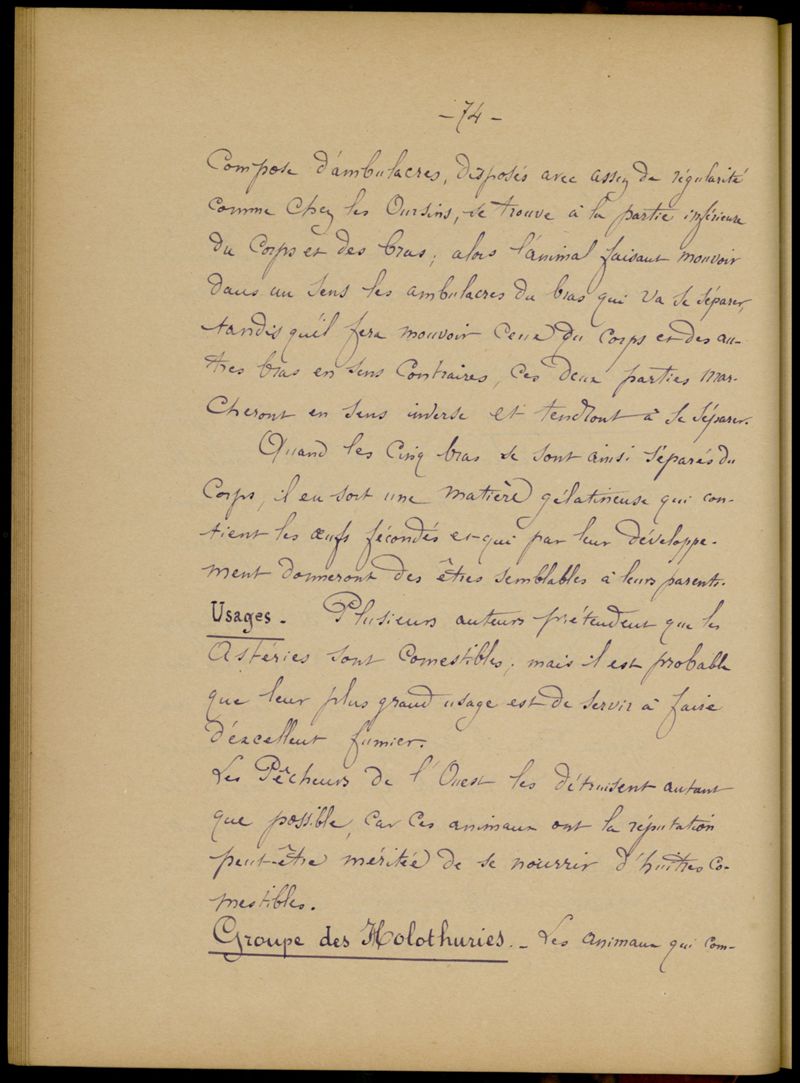 - 74 -
Compose d'ambulacres, disposés avec assez de régularité
comme chez les Oursins, se trouve à la partie inférieure
du Corps et des bras; alors l'animal faisant mouvoir
dans un sens les ambulacres du bras qui va se séparer,
tandis qu'il fera mouvoir ceux du corps et des au-
tres bras en sens contraires, ces deux parties mar-
cheront en sens inverse et tendront à se séparer.
Quand les cinq bras se sont ainsi séparés du
Corps, il en sort une matière gélatineuse qui con-
tient les œufs fécondés et qui par leur développe-
ment donneront des êtres semblables à leurs parents.
Usages. Plusieurs auteurs prétendent que les
Astéries sont comestibles; mais il est probable
que leur plus grand usage est de servir à faire
d'excellent fumier.
Les Pêcheurs de l'Ouest les détruisent autant
que possible, car ces animaux ont la réputation
peut-être méritée de se nourrir d'huîtres co-
mestibles.
Groupe des Holothuries. - Les animaux qui com-